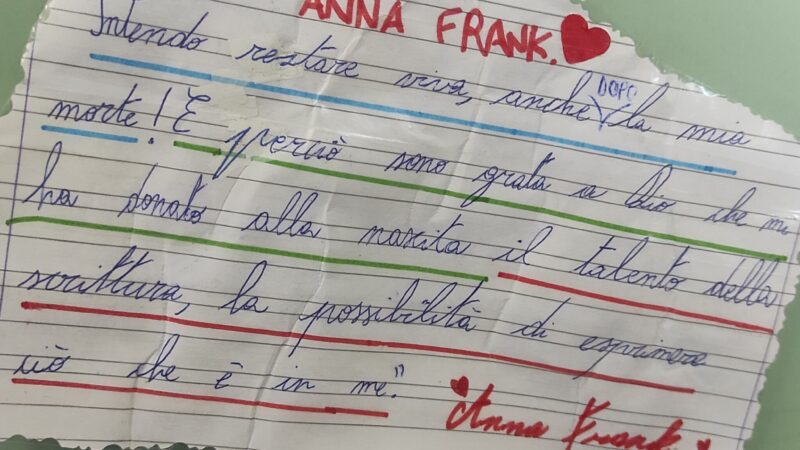 ANNA FRANK.
Intendo restare viva, anche DOPO la mia
morte! E perciò sono grata a Dio che mi
ha donato alla nascita il talento della
scrittura, la possibilità di esprimere
ciò che è in me."
Anna Frank.